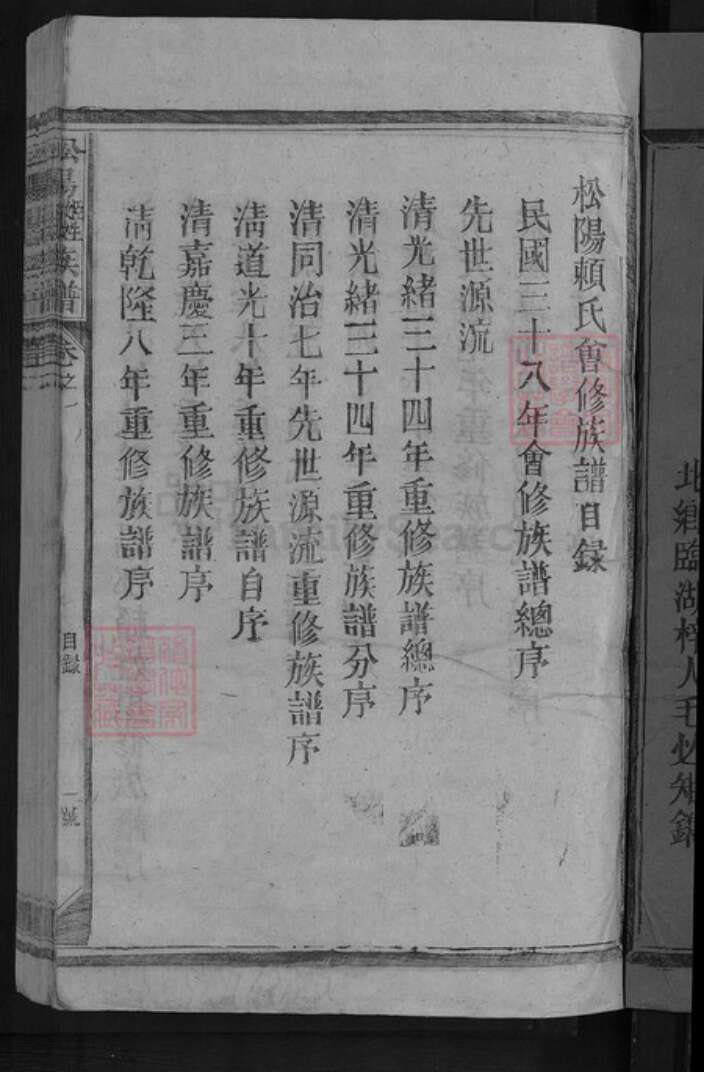 松陽賴氏會修族譜目録
民國三十八年會修族譜總序
先世源流
清光緒三十四年重修族譜總序
清光緒三十四年重修族譜分序
清同治七年先世源流重修族譜序
清道光十年重修族譜自序
清嘉慶三年重修族譜序
清乾隆八年重修族譜序
目録
一號
北鄉臨湖梓人毛必
FamilySearch